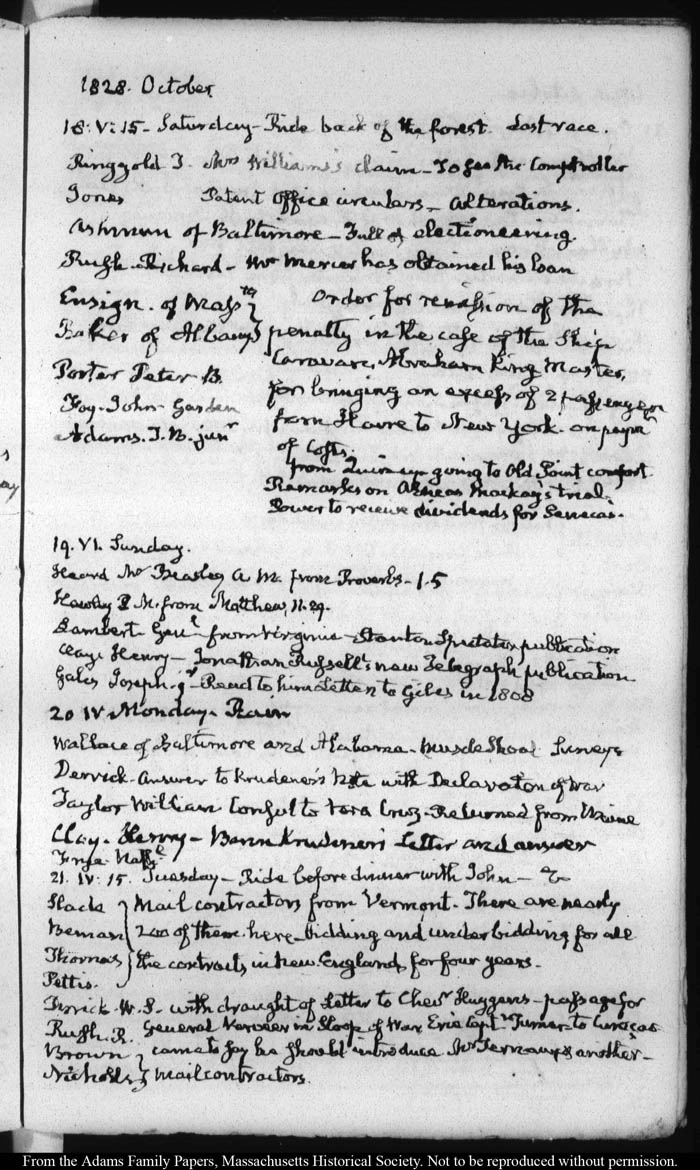 1828. October
18. V: 15 - Saturday - Ride back of the forest. Last race.
Ringgold T. Mrs Williams's claim - To see the Comptroller
Jones Patent Office circulars - Alterations.
of Baltimore - Full of electioneering
Rush Richard - Mr Mercer has obtained his loan
Ensign. of Massts } Order for remission of the
Baker of Albany } penalty in the case of the Ship
Porter Peter B. Caravan, Abraham King Master,
Foy. John - Garden for bringing an excess of 2 passengers
Adams. J. B. junr from Havre to New York. on paymt
of Costs.
from Quincy going to Old Point comfort
Remarks on Aeneas Mackay's trial.
Power to receive dividends for Senecas.
19. VI. Sunday.
Heard Mr Beasley A M. from Proverbs - 1.5
Hawley P M. from Matthew, 11.29.
Lambert Genl - from Virginia - Staunton Spectator publication
Clay. Henry - Jonathan Russell's new Telegraph publication
Gales Joseph jr - Read to him Letter to Giles in 1808
20 IV Monday. Rain
Wallace of Baltimore and Alabama - Muscle Shoal Surveys
Derrick - Answer to Krudener's Note with Declaration of War
Taylor William Consul to Vera Cruz - Returned from
Clay. Henry - Baron Krudener's Letter and answer
21. IV: 15. Tuesday - Ride before dinner with John -
Slade } Mail contractors from Vermont. There are nearly
Beman } 200 of them here - bidding and underbidding for all
Thomas } the contracts in New England for four years.
Pettis.
W. S. with draught of Letter to Chevr Huygens - passage for
Rush. R. General Verveer in Sloop of War Erie Captn Turner to Curaçao
Brown } came to say he should introduce Mr & another -
Nicholls } mail contractors.
From the Adams Family Papers, Massachusetts Historical Society. Not to be reproduced without permission.